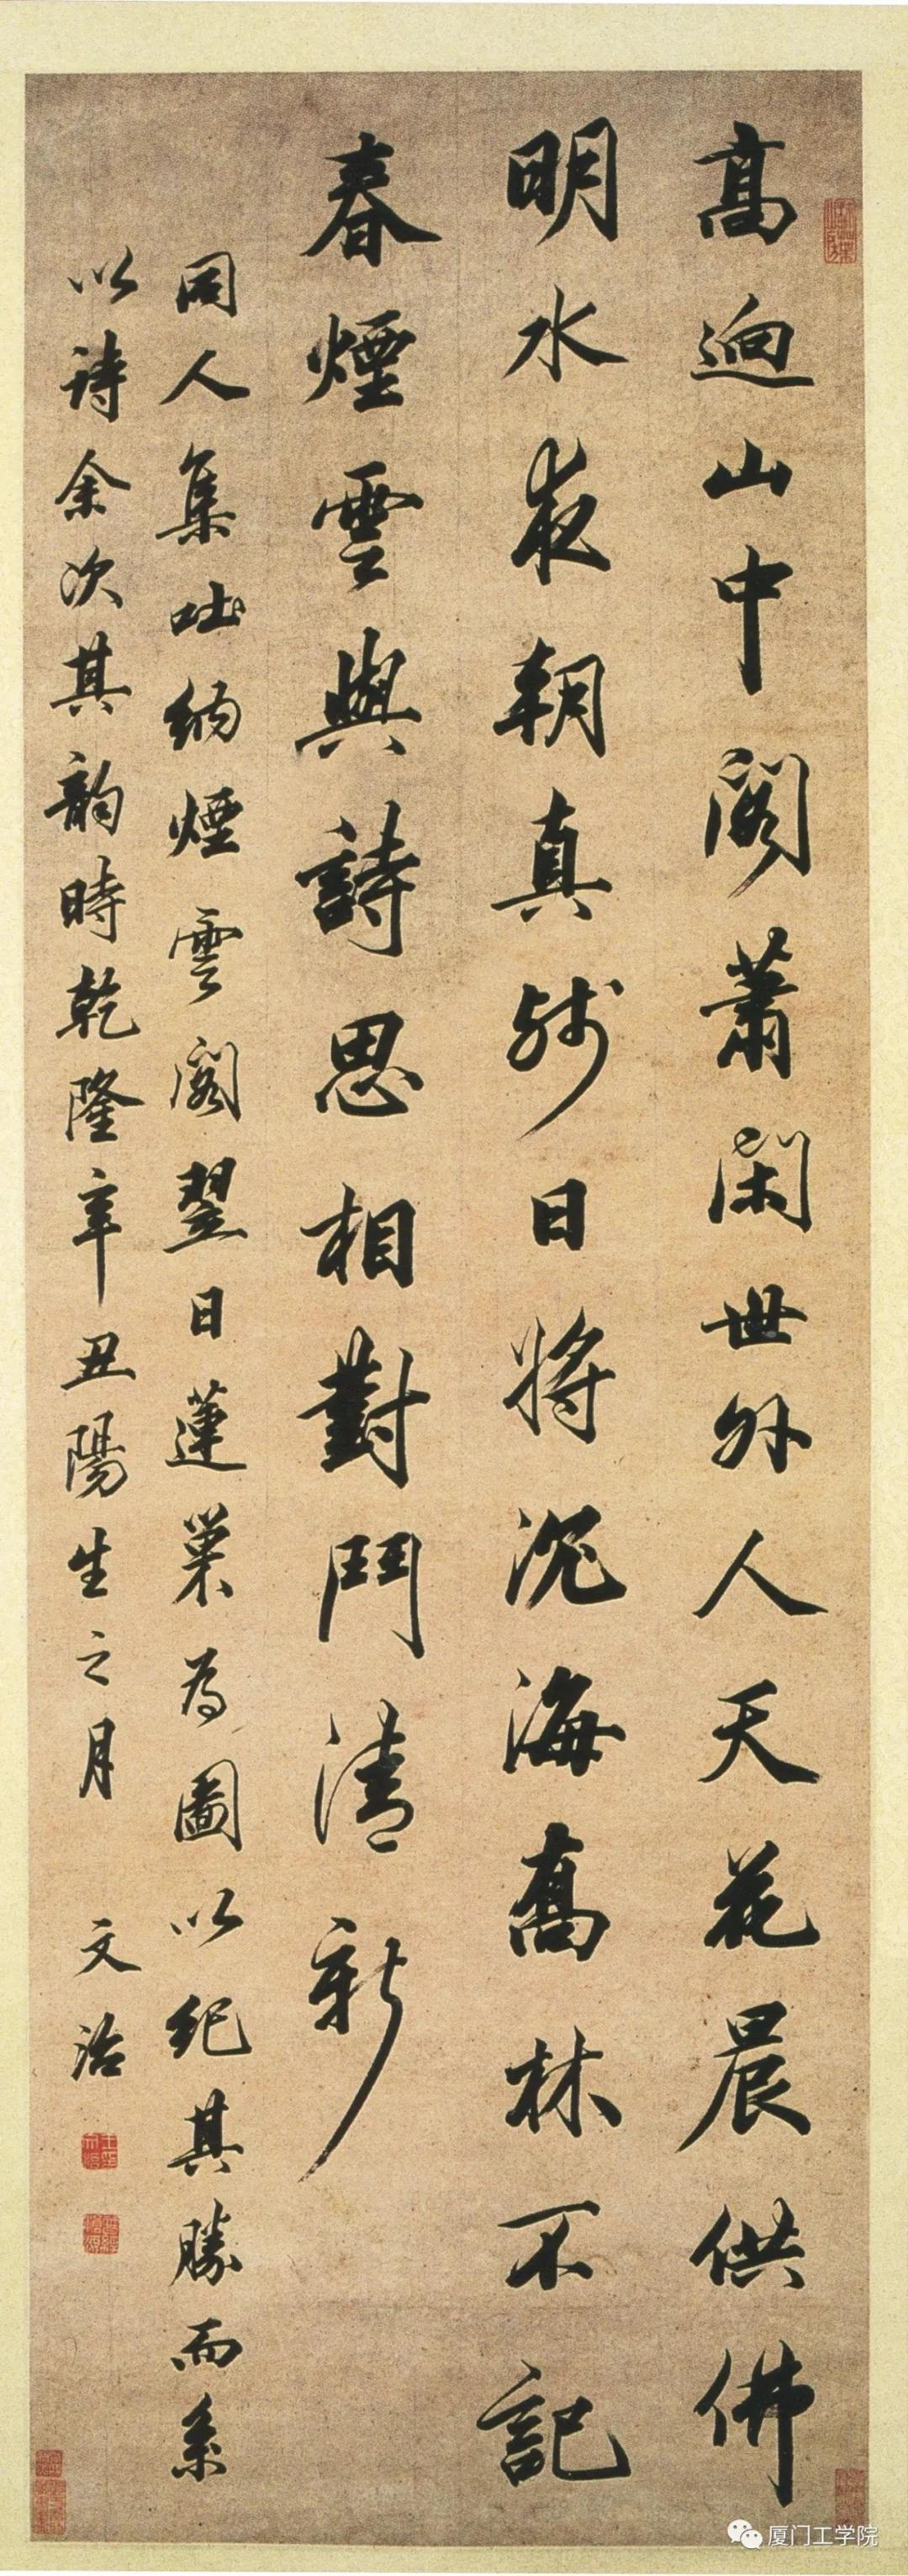 高迥山中阁蕭闲世外人天花晨供佛
明水夜朝真殘日將沉海高林不記
春煙雲與詩思相對鬥清新
同人集吐納煙雲阁翌日蓮巢为圖以纪其勝而系
以詩余次其韵時乾隆辛丑陽生之月 文治
厦门工学院